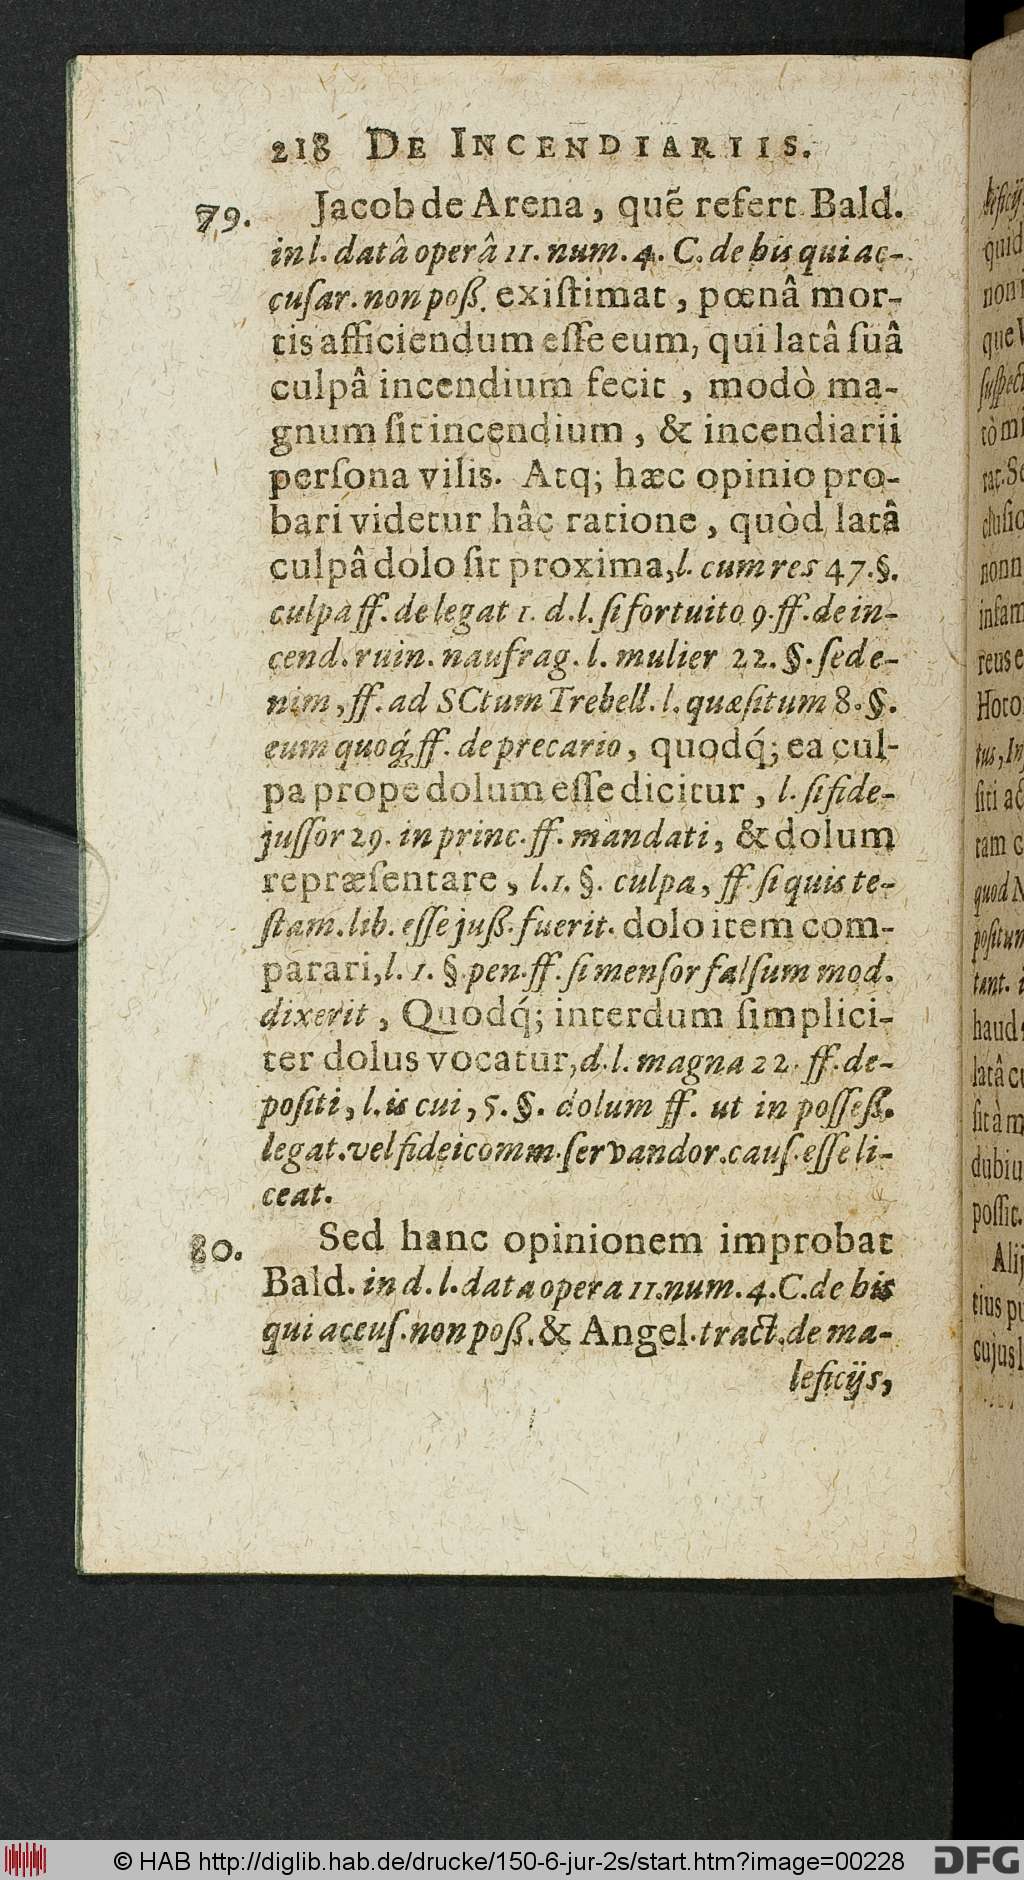 218 DE INCENDIARIIS.
79. Jacob de Arena, quẽ refert Bald.
in l. datâ operâ 11. num. 4. C. de his qui ac-
cusar. non poß. existimat, pœnâ mor-
tis afficiendum esse eum, qui latâ suâ
culpâ incendium fecit, modò ma-
gnum sit incendium, & incendiarii
persona vilis. Atq; hæc opinio pro-
bari videtur hâc ratione, quòd latâ
culpâ dolo sit proxima, l. cum res 47. §.
culpa ff. de legat 1. d. l. si fortuito 9. ff. de in-
cend. ruin. naufrag. l. mulier 22. §. sed e-
nim, ff. ad SCtum Trebell. l. quæsitum 8. §.
eum quoq́; ff. de precario, quodq́; ea cul-
pa prope dolum esse dicitur, l. si fide-
jussor 29. in princ. ff. mandati, & dolum
repræsentare, l. 1. §. culpa, ff. si quis te-
stam. lib. esse juß. fuerit. dolo item com-
parari, l. 1. §. pen. ff. si mensor falsum mod.
dixerit, Quodq́; interdum simplici-
ter dolus vocatur, d. l. magna 22. ff. de-
positi, l. is cui, 5. §. dolum ff. ut in posseß.
legat. vel fideicomm. servandor. caus. esse li-
ceat.
80. Sed hanc opinionem improbat
Bald. in d. l. data opera 11. num. 4. C. de his
qui accus. non poß. & Angel. tract. de ma-
leficijs,
leficijs
quid
non
que
suspect
tò mi
rat. Se
clusio
nonn
infam
reus e
Hoto
tus, In
siti ac
tam c
quod N
positum
tant. i
haud
latâ cu
sit à m
dubiu
possit.
Alij
tius pu
cujus l
© HAB http://diglib.hab.de/drucke/150-6-jur-2s/start.htm?image=00228
DFG